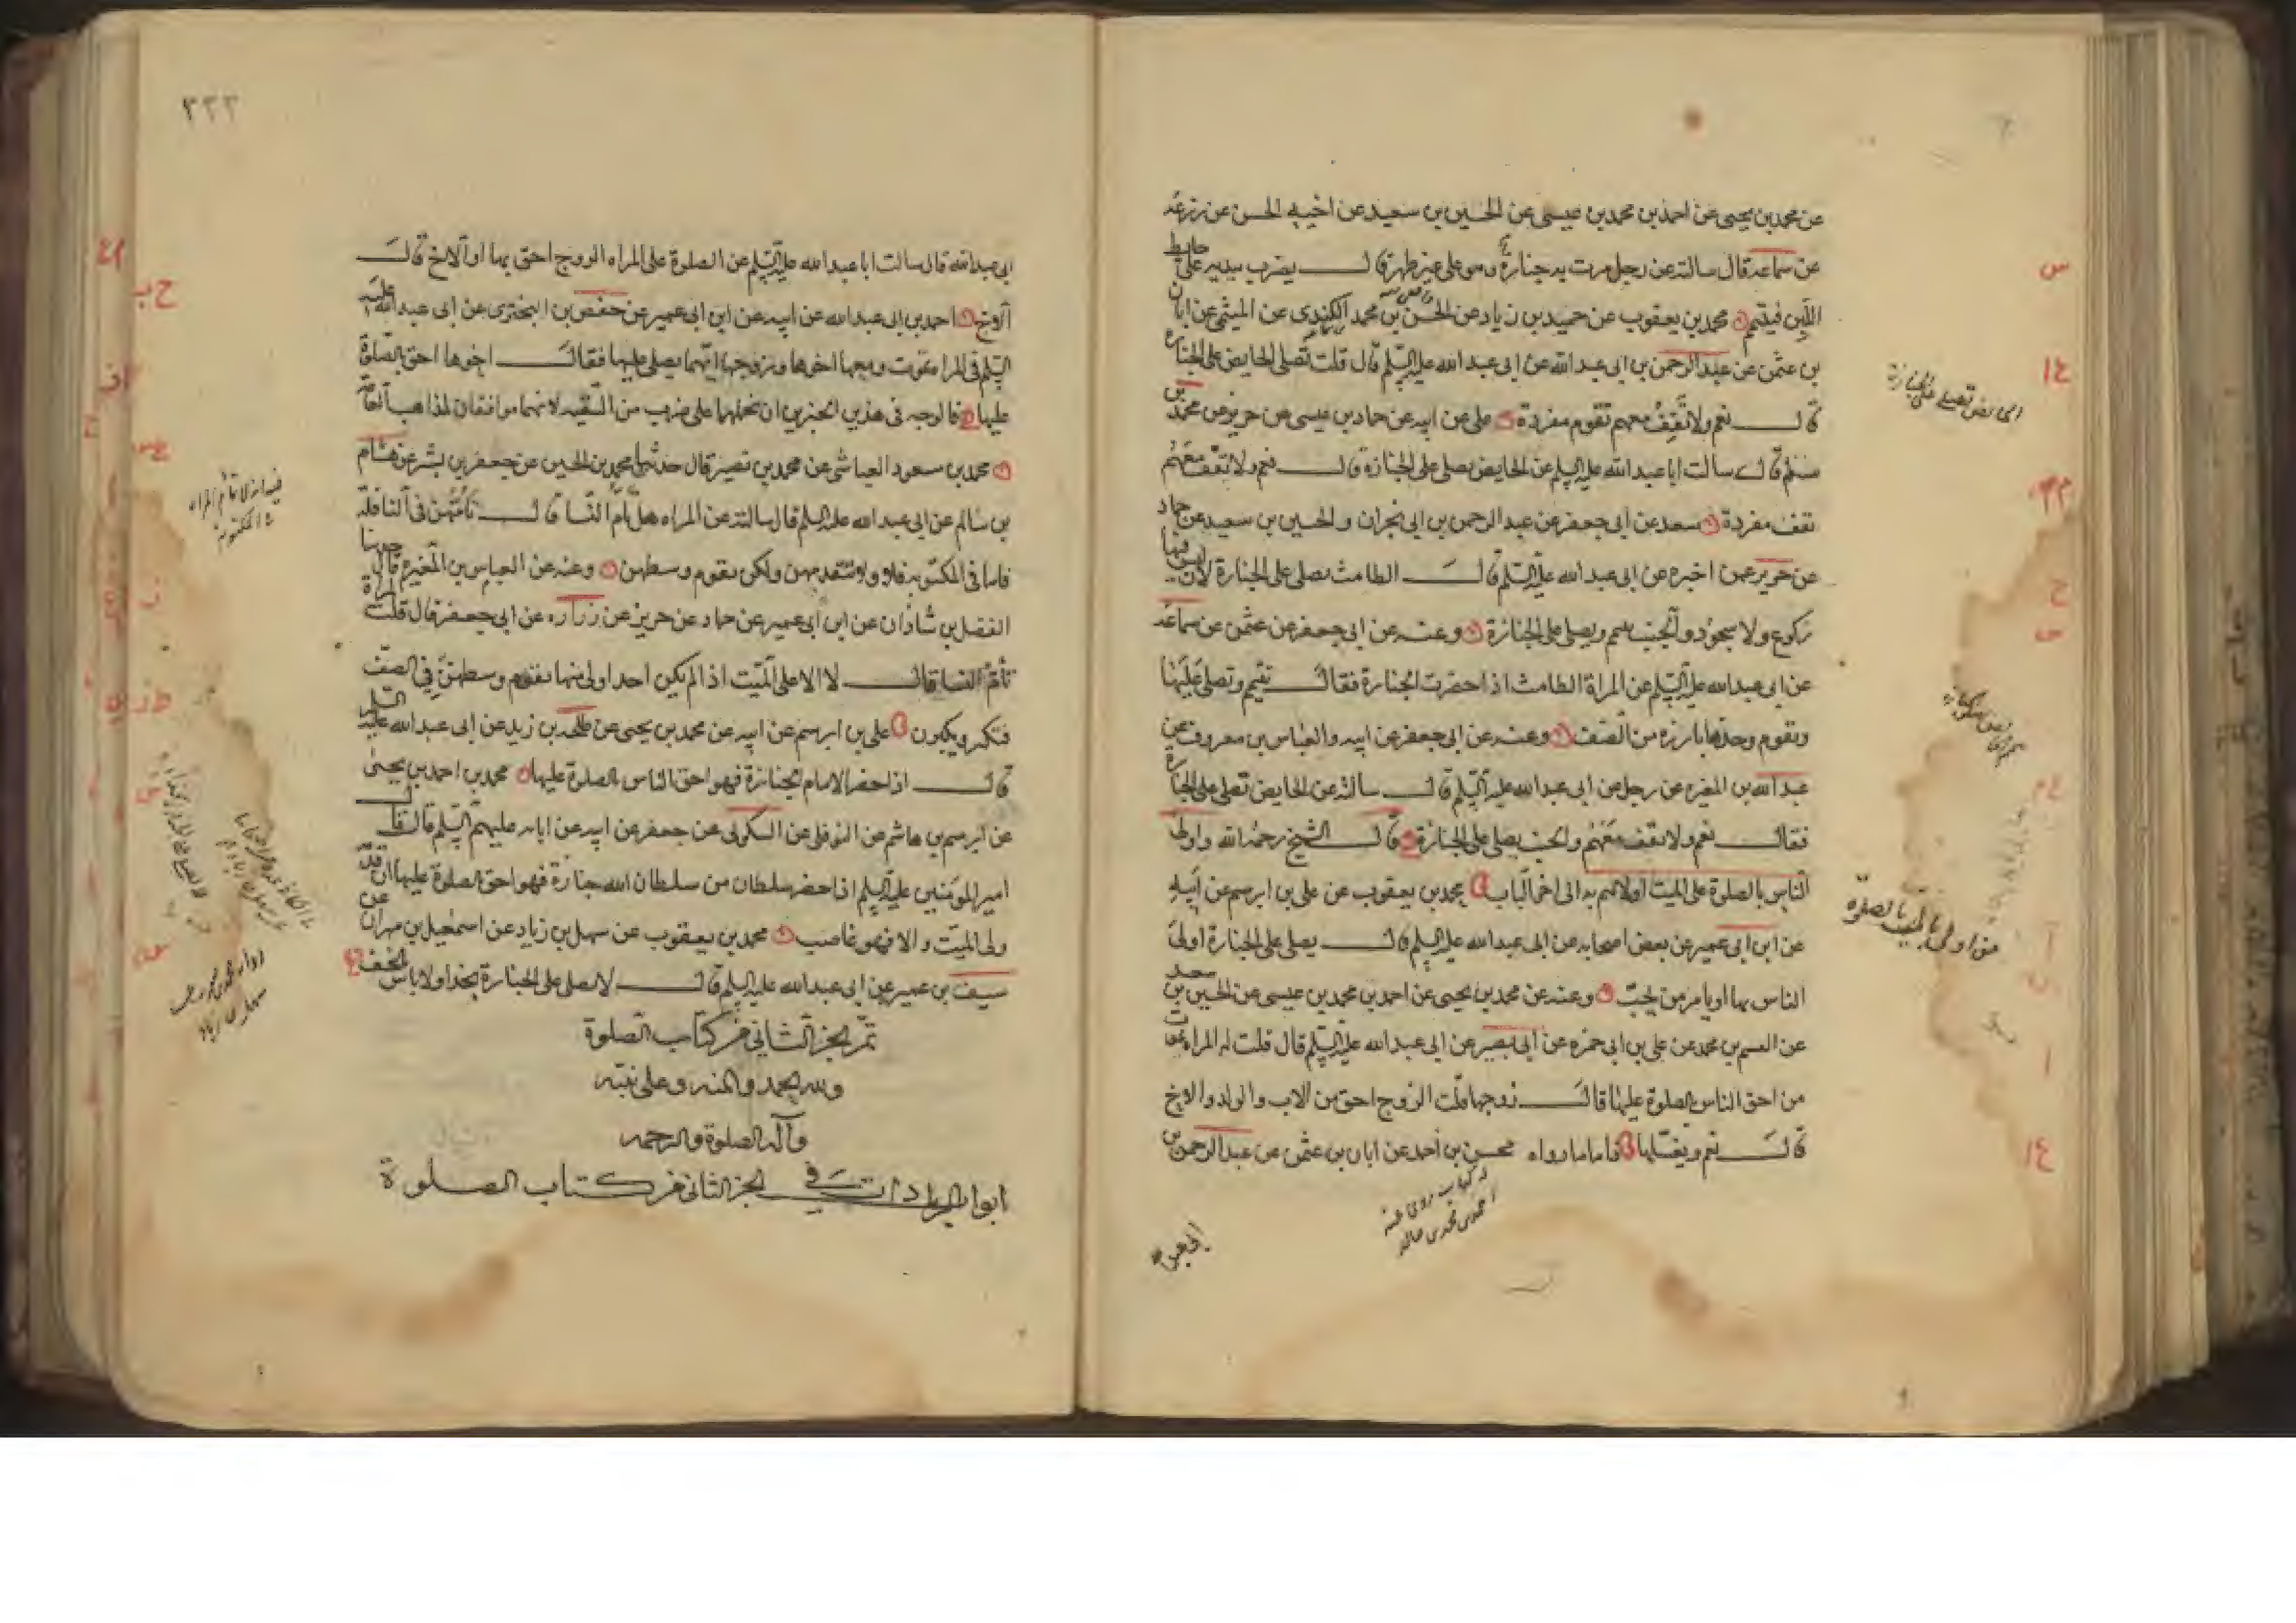 عن محمد بن يحيى عن احمد بن محمد بن عيسى عن الحسين بن سعيد عن اخيه الحسن عن زرعه
عن سماعه قال سالته عن رجل مرت به جنازة وهو على غير طهر قال يضرب بيديه على حايط
اللبن فيتيمم محمد بن يعقوب عن حميد بن زياد عن الحسن بن محمد الكندى عن الميثمى عن ابان
بن عثمن عن عبد الرحمن بن ابى عبد الله عن ابى عبد الله عليه السلم قال قلت تصلى الحايض على الجنازة
قال نعم ولا تقف معهم تقوم مفردة على عن ابيه عن حماد بن عيسى عن حريز عن محمد بن
مسلم قال سالت ابا عبد الله عليه السلم عن الحايض يصلى على الجنازة قال نعم ولا تقف معهم
تقف مفردة سعد عن ابى جعفر عن عبد الرحمن بن ابى نجران والحسين بن سعيد عن حماد
عن حريز عمن اخبره عن ابى عبد الله عليه السلم قال الطامث تصلى على الجنازة لان ليس فيها
ركوع ولا سجود والجنب يتيمم ويصلى على الجنازة وعنه عن ابى جعفر عن عثمن عن سماعه
عن ابى عبد الله عليه السلم عن المراة الطامث اذا حضرت الجنازة فقال تتيمم وتصلى عليها
وتقوم وحدها بارزه من الصف وعنه عن ابى جعفر عن ابيه والعباس بن معروف عن
عبد الله بن المغيره عن رجل عن ابى عبد الله عليه السلم قال سالته عن الحايض تصلى على الجنازة
فقال نعم ولا تقف معهم والجنب يصلى على الجنازة قال الشيخ رحمه الله واولى
الناس بالصلوة على الميت اولاهم به الى اخر الباب محمد بن يعقوب عن على بن ابرهيم عن ابيه
عن ابن ابى عمير عن بعض اصحابه عن ابى عبد الله عليه السلم قال يصلى على الجنازة اولى
الناس بها او يامر من يحب وعنه عن محمد بن يحيى عن احمد بن محمد بن عيسى عن الحسين بن سعيد
عن القسم بن محمد عن على بن ابى حمزه عن ابى بصير عن ابى عبد الله عليه السلم قال قلت له المراه تموت
من احق الناس بالصلوة عليها قال زوجها قلت الزوج احق من الاب والولد والاخ
قال نعم ويغسلها فاما ما رواه محسن بن احمد عن ابان بن عثمن عن عبد الرحمن بن
ابى عبد الله
الحايض تصلى على الجنازة
من اولى بالميت بالصلوة
٢٢٢
ابى عبد الله قال سالت ابا عبد الله عليه السلم عن الصلوة على المراه الزوج احق بها او الاخ قال
الاخ احمد بن ابى عبد الله عن ابيه عن ابن ابى عمير عن حفص بن البخترى عن ابى عبد الله عليه
السلم فى المراه تموت ومعها اخوها وزوجها ايهما يصلى عليها فقال اخوها احق بالصلوة
عليها فالوجه فى هذين الخبرين ان نحملهما على ضرب من التقيه لانهما موافقان لمذاهب العامه
محمد بن مسعود العياشى عن محمد بن نصير قال حدثنا محمد بن الحسين عن جعفر بن بشير عن هشام
بن سالم عن ابى عبد الله عليه السلم قال سالته عن المراه هل تام النسا قال تامهن فى النافله
فاما فى المكتوبه فلا ولا تتقدمهن ولكن تقوم وسطهن وعنه عن العباس بن المغيره قال حدثنا
الفضل بن شاذان عن ابن ابى عمير عن حماد عن حريز عن زراره عن ابى جعفر قال قلت المراة
تام النسا قال لا الا على الميت اذا لم يكن احد اولى منها تقوم وسطهن فى الصف
فتكبر ويكبرون على بن ابرهيم عن ابيه عن محمد بن يحيى عن طلحه بن زيد عن ابى عبد الله عليه السلم
قال اذا حضر الامام الجنازة فهو احق الناس بالصلوة عليها محمد بن احمد بن يحيى
عن ابرهيم بن هاشم عن النوفلى عن السكونى عن جعفر عن ابيه عن ابايه عليهم السلم قال قال
امير المومنين عليه السلم اذا حضر سلطان من سلطان الله جنازة فهو احق بالصلوة عليها ان قدمه
ولى الميت والا فهو غاصب محمد بن يعقوب عن سهل بن زياد عن اسمعيل بن مهران عن
سيف بن عميره عن ابى عبد الله عليه السلم قال لا يصلى على الجنازة بحذا ولا باس بالخف
تم الجز الثانى من كتاب الصلوة
ولله الحمد والمنه وعلى نبيه
وآله الصلوة والرحمه
ابواب الزيادات فى الجز الثانى من كتاب الصلوة